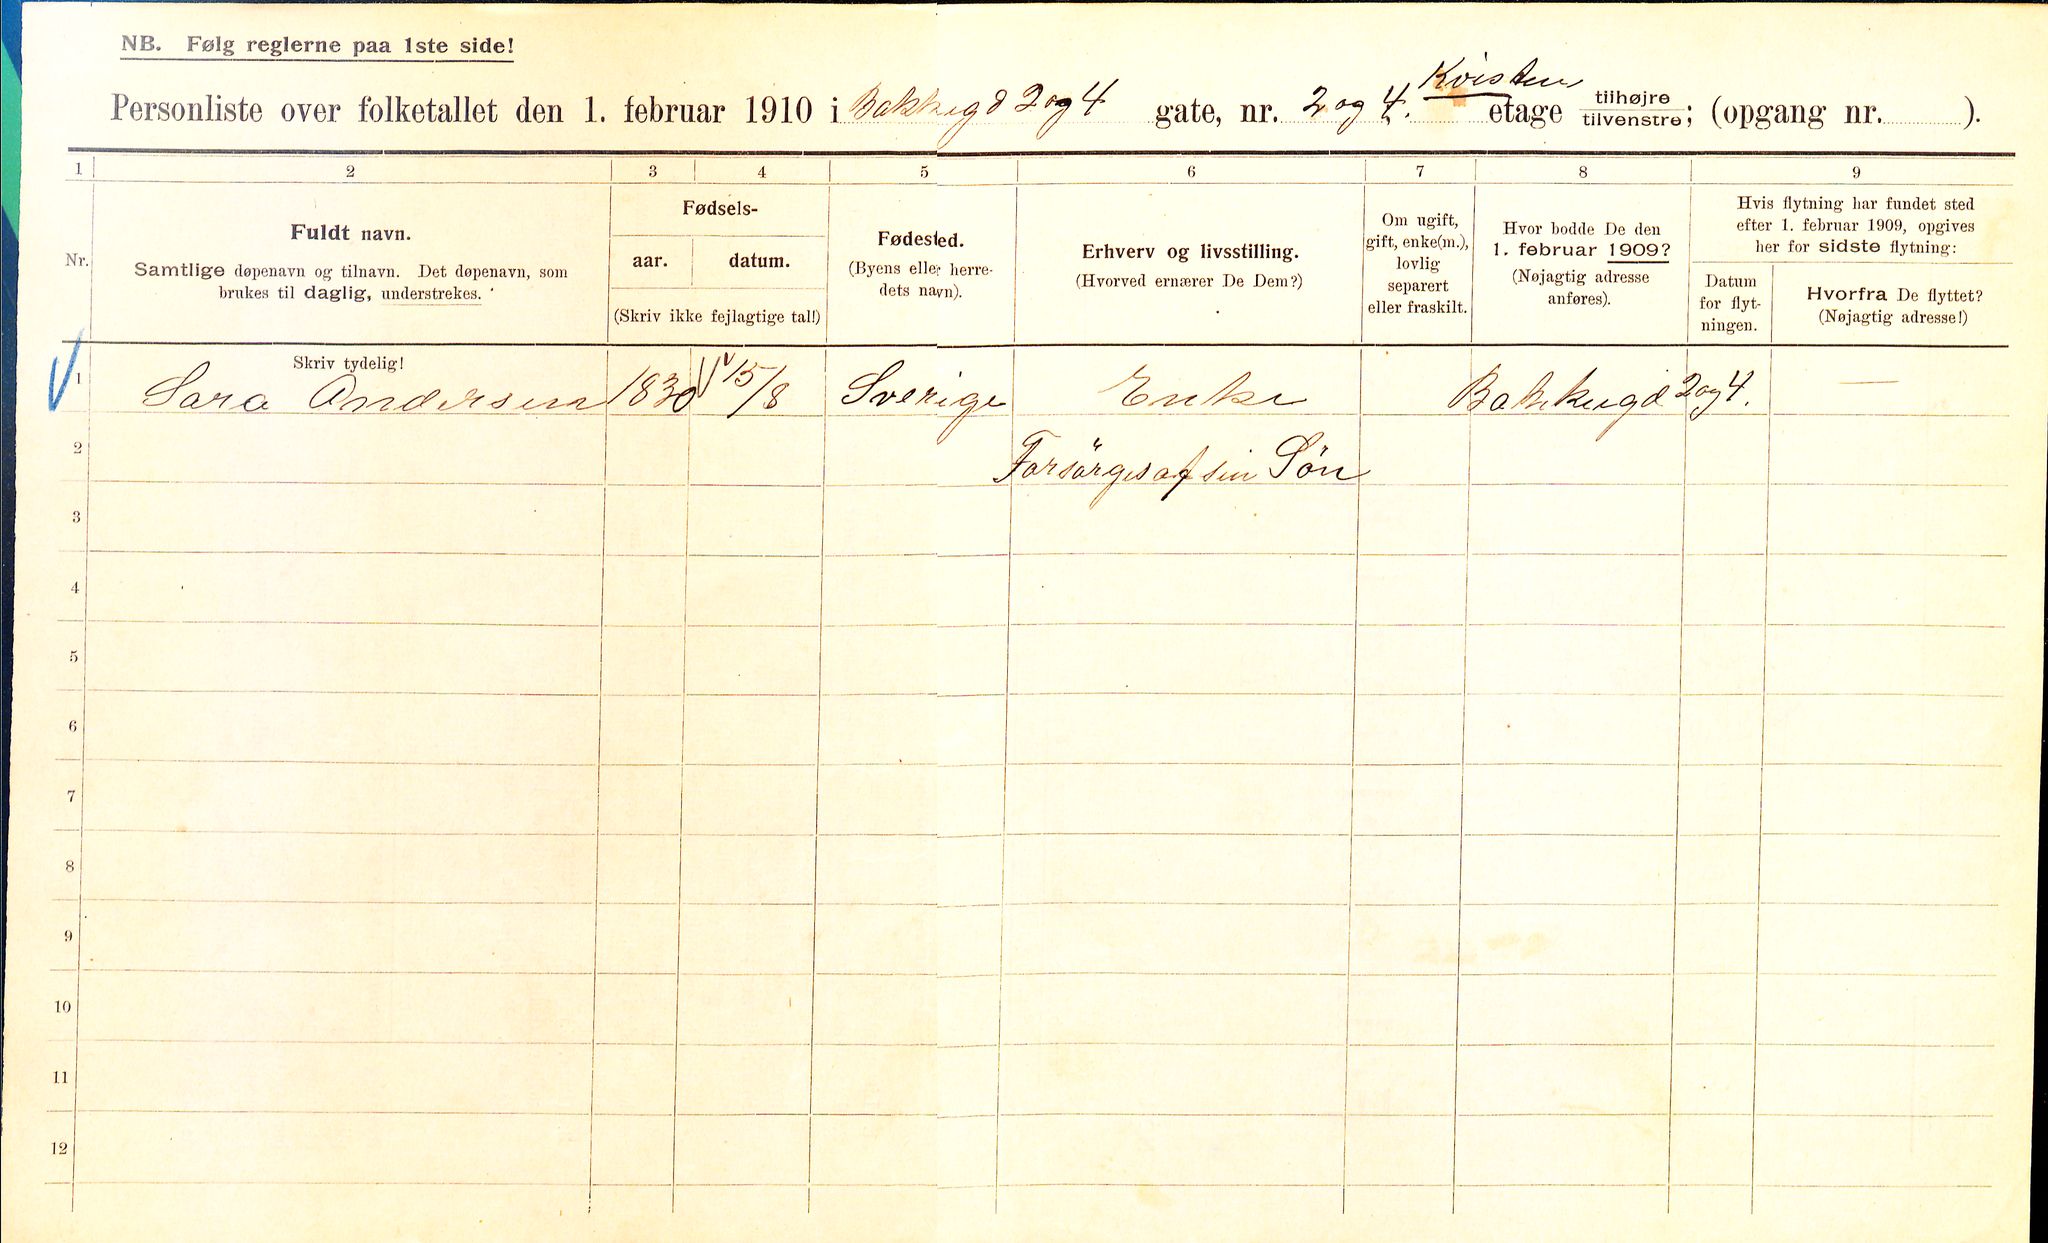 NB. Følg reglerne paa 1ste side!
Personliste over folketallet den 1. februar 1910 i Bakkegd 2 og 4 gate, nr. 2 og 4. Kvisten etage tilhøjre tilvenstre; (opgang nr. ).
1 2 3 4 5 6 7 8 9
Nr.
Fuldt navn.
Samtlige døpenavn og tilnavn. Det døpenavn, som
brukes til daglig, understrekes.
Fødsels-
aar. datum.
(Skriv ikke fejlagtige tal!)
Fødested.
(Byens eller herre-
dets navn).
Erhverv og livsstilling.
(Hvorved ernærer De Dem?)
Om ugift,
gift, enke(m.),
lovlig
separert
eller fraskilt.
Hvor bodde De den
1. februar 1909?
(Nøjagtig adresse
anføres).
Hvis flytning har fundet sted
efter 1. februar 1909, opgives
her for sidste flytning:
Datum
for flyt-
ningen.
Hvorfra De flyttet?
(Nøjagtig adresse!)
Skriv tydelig!
1 Sara Andersen 1830 15/8 Sverige Enke Bakkegd 2 og 4. —
2 Forsörges af sin Sön
3
4
5
6
7
8
9
10
11
12